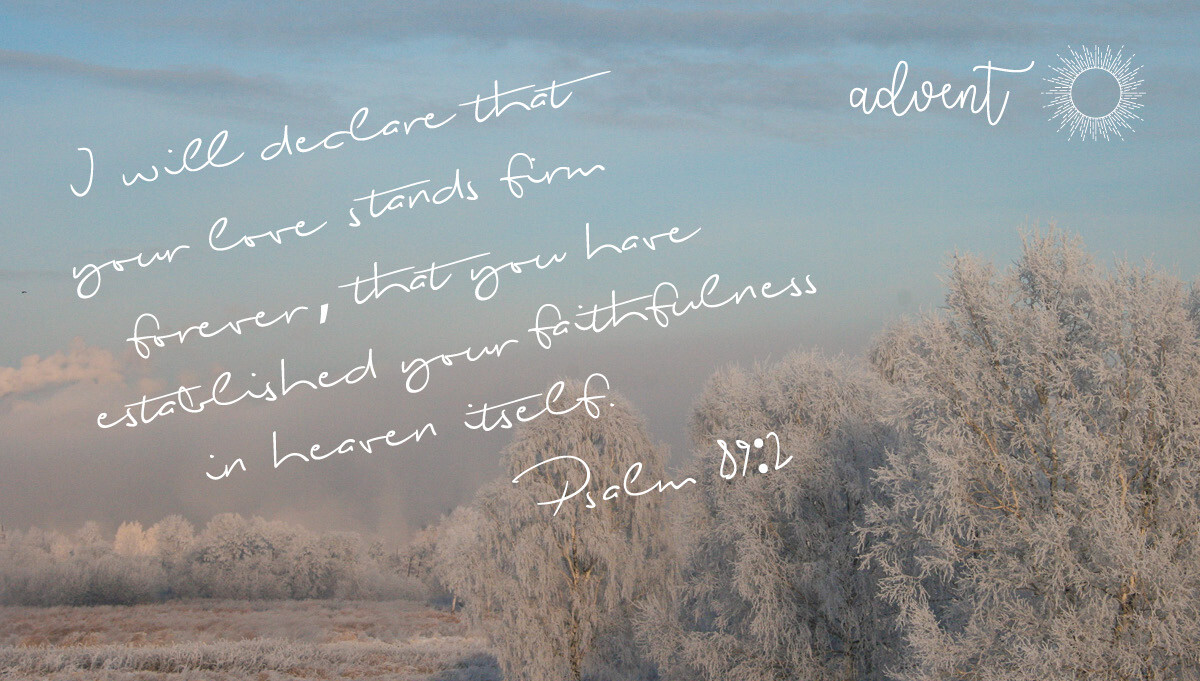 advent
I will declare that
your love stands firm
forever, that you have
established your faithfulness
in heaven itself.
Psalm 89:2